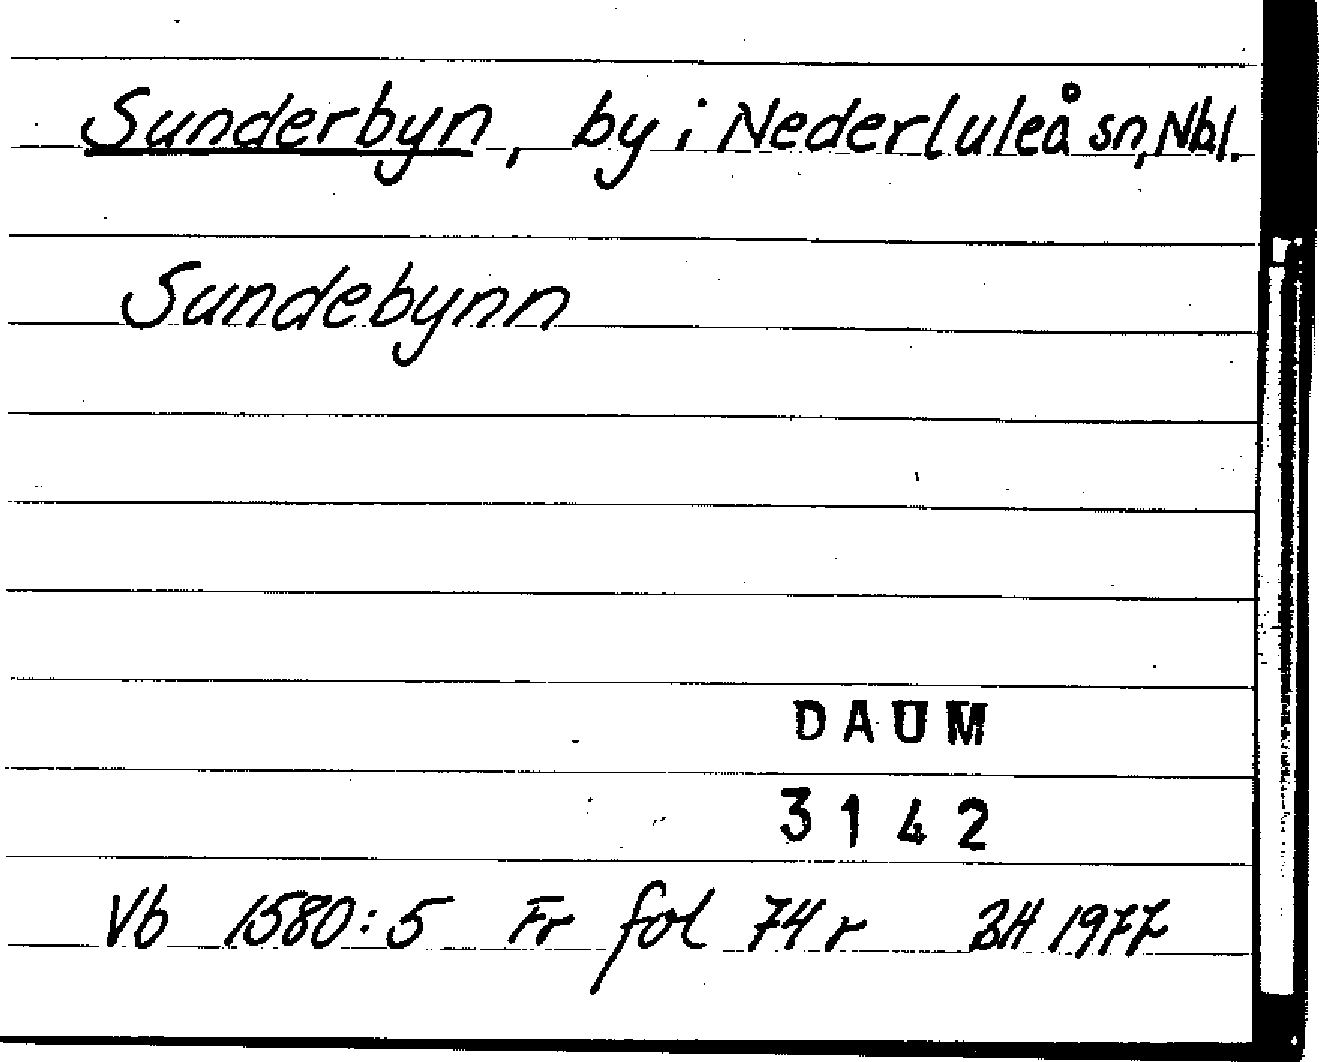 Sunderbyn, by i Nederluleå sn, Nbl.
Sundebynn
DAUM
3142
Vb 1580:5 Fr fol 74 r BH 1977